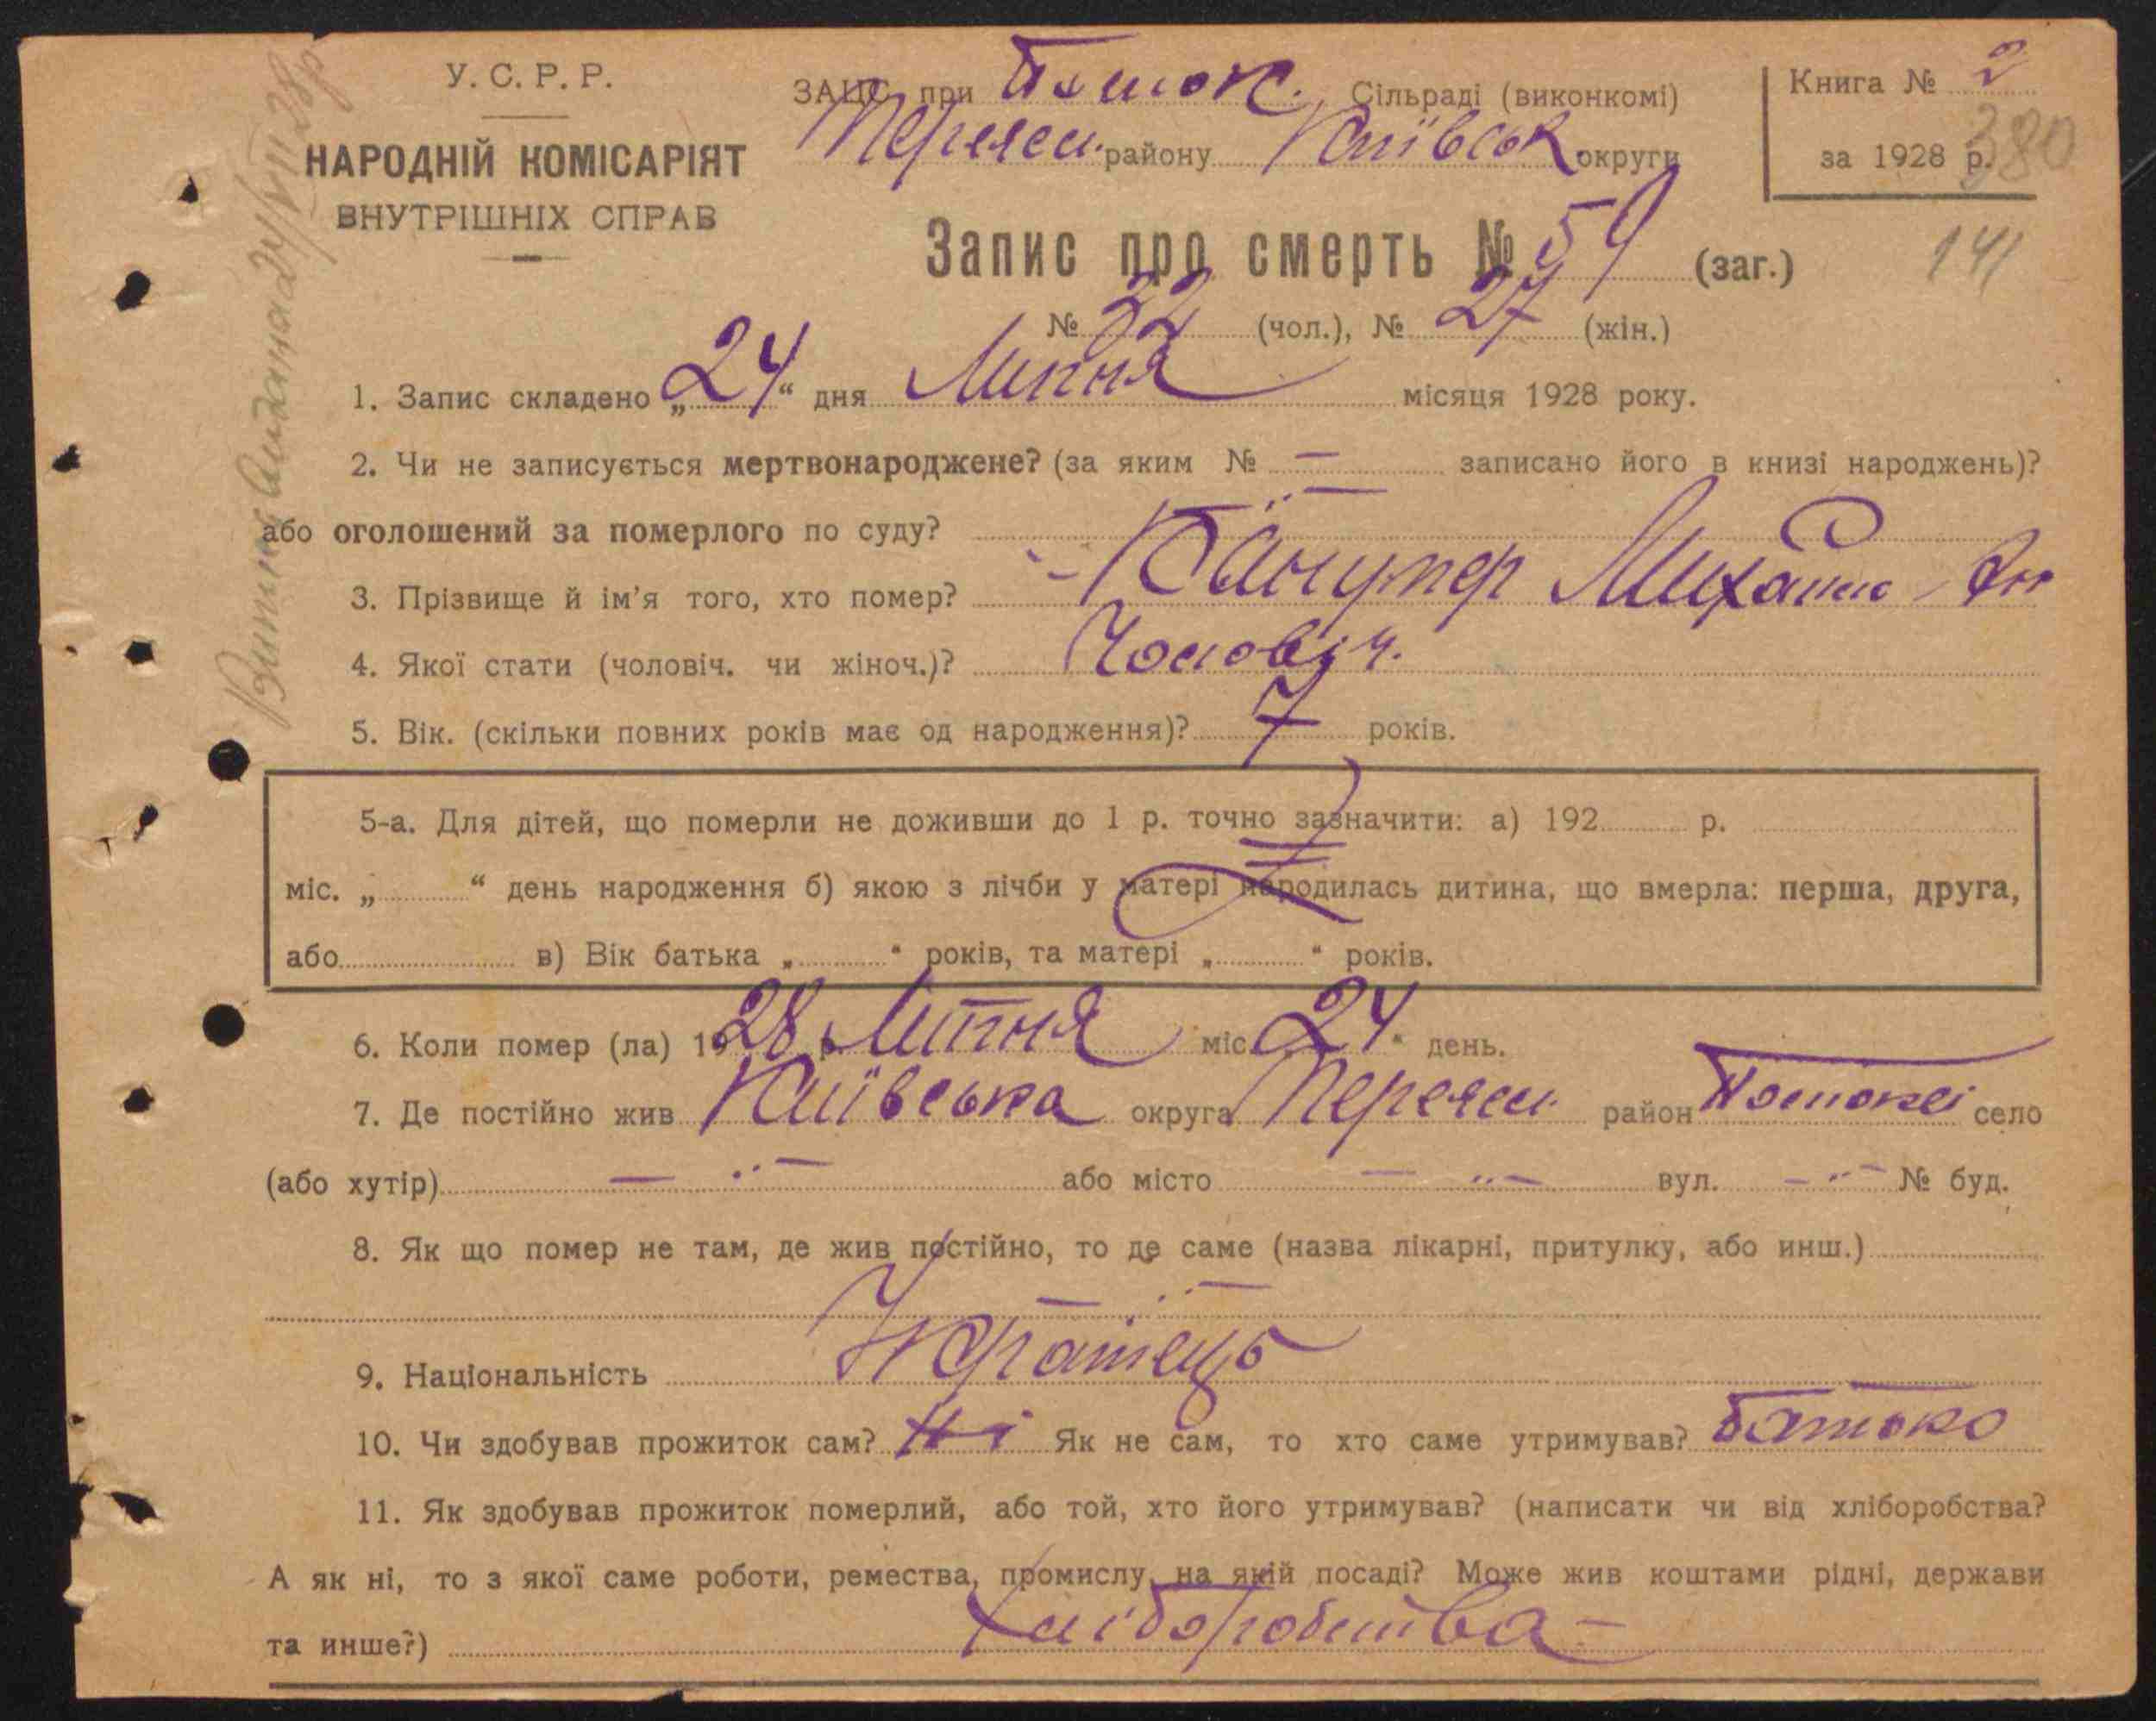 У. С. Р. Р.
НАРОДНІЙ КОМІСАРІЯТ
ВНУТРІШНІХ СПРАВ
ЗАЦС при Пешок. Сільраді (виконкомі)
Переясл. району Київськ округи
Книга № 2
за 1928 р.
380
141
Запис про смерть № 59 (заг.)
№ 32 (чол.), № 27 (жін.)
1. Запис складено „24“ дня Липня місяця 1928 року.
2. Чи не записується мертвонароджене? (за яким № — записано його в книзі народжень)?
або оголошений за померлого по суду?
3. Прізвище й ім’я того, хто помер? Михайло
4. Якої стати (чоловіч. чи жіноч.)? Чоловіч.
5. Вік. (скільки повних років має од народження)? 7 років.
5-а. Для дітей, що померли не доживши до 1 р. точно зазначити: а) 192 р.
міс. „ “ день народження б) якою з лічби у матері народилась дитина, що вмерла: перша, друга,
або в) Вік батька „ “ років, та матері „ “ років.
6. Коли помер (ла) 1928 р. Липня міс. 24“ день.
7. Де постійно жив Київська округа Переясл. район село
(або хутір) — " — або місто — " — вул. — " — № буд.
8. Як що помер не там, де жив постійно, то де саме (назва лікарні, притулку, або инш.)
— " —
9. Національність Украінець
10. Чи здобував прожиток сам? Ні Як не сам, то хто саме утримував? Батько
11. Як здобував прожиток померлий, або той, хто його утримував? (написати чи від хліборобства?
А як ні, то з якої саме роботи, ремества, промислу, на якій посаді? Може жив коштами рідні, держави
та инше?) Хліборобства —